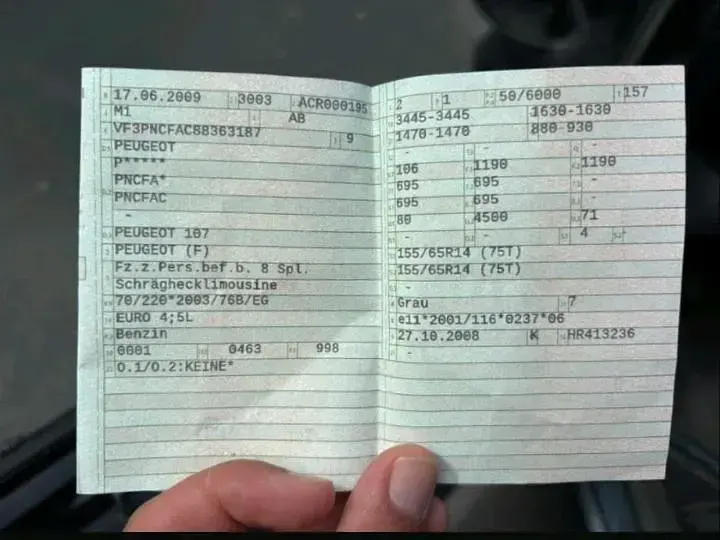 17.06.2009 3003 ACR000195
M1 AB
VF3PNCFAC88363187 9
PEUGEOT
P*****
PNCFA*
PNCFAC
-
PEUGEOT 107
PEUGEOT (F)
Fz.z.Pers.bef.b. 8 Spl.
Schräghecklimousine
70/220*2003/76B/EG
EURO 4;5L
Benzin
0001 0463 998
0.1/0.2:KEINE*
2 1 50/6000 157
3445-3445 1630-1630
1470-1470 880-930
- - -
106 1190 1190
695 695 -
695 695 -
80 4500 71
- - 4
155/65R14 (75T)
155/65R14 (75T)
-
Grau 7
e11*2001/116*0237*06
27.10.2008 K HR413236
-